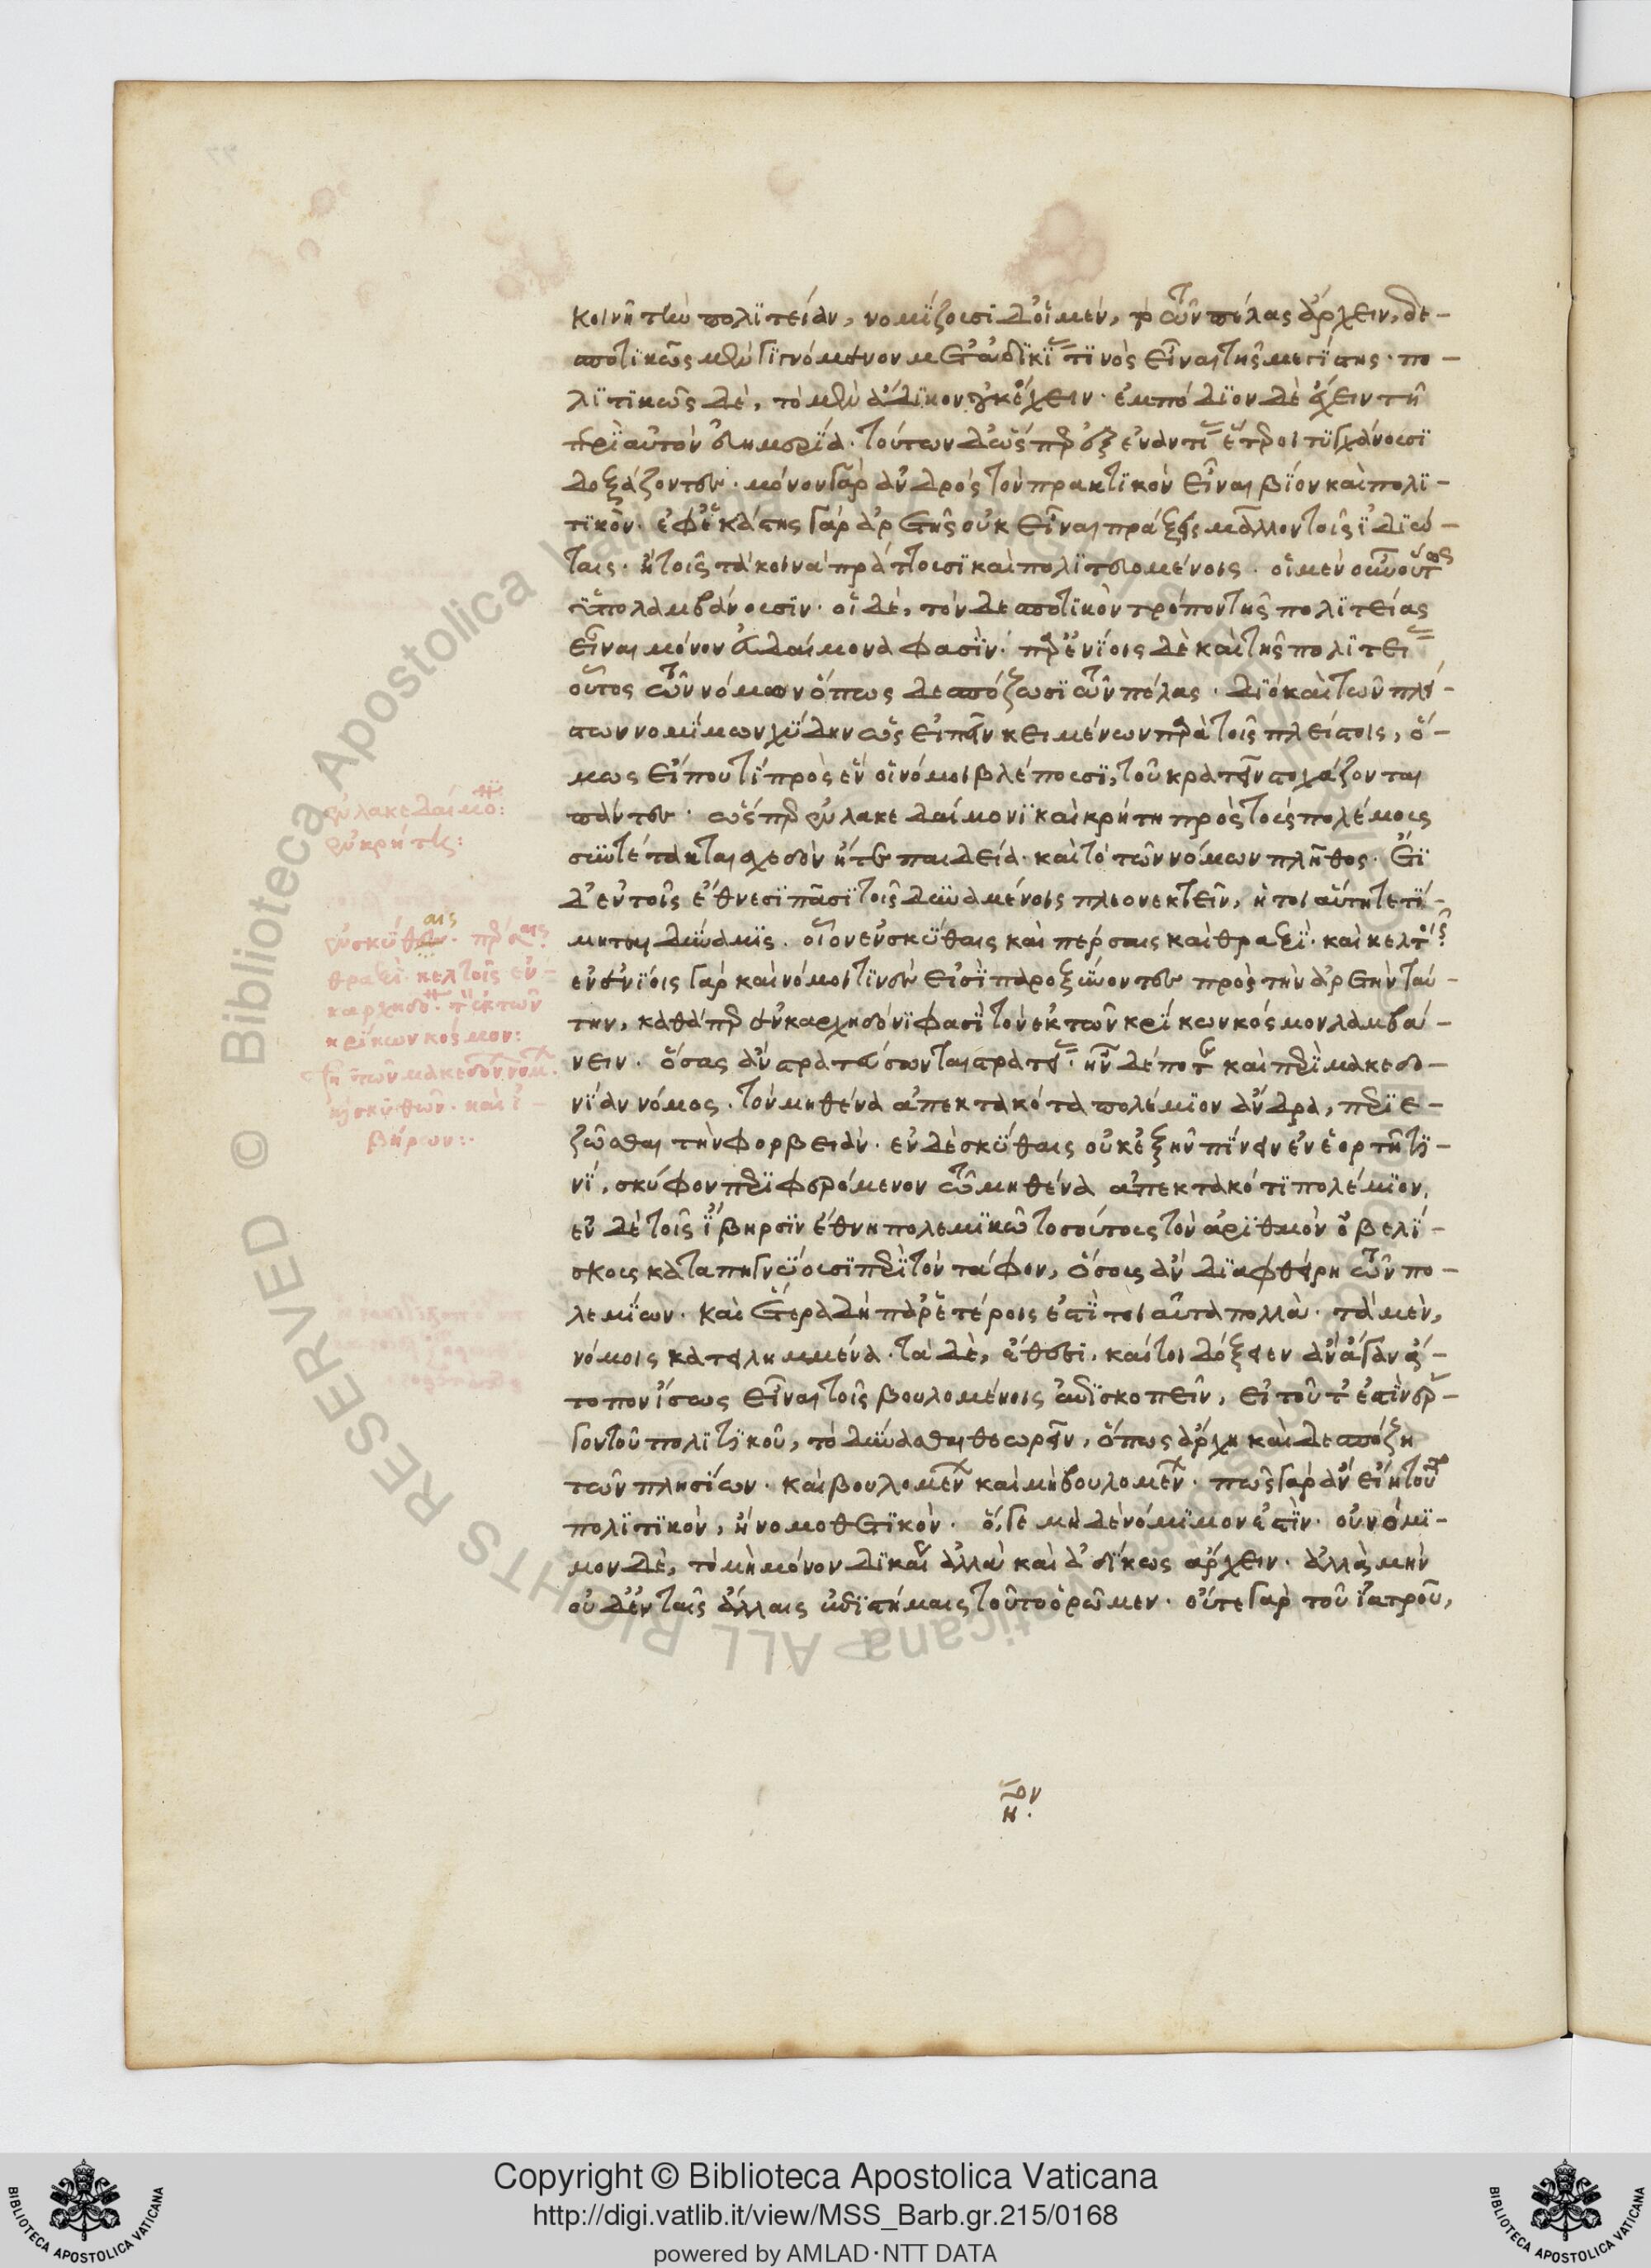 κοινῆ τὴν πολϊτείαν, νομΐζουσι δ' οἱ μὲν, τὸ τῶν πέλας ἄρχειν, δε-
σποτϊκῶς μὲν γϊγνόμενον μετ' ἀδϊκίας τϊνὸς εἶναι τῆς μεγίστης· πο-
λϊτϊκῶς δὲ, τὸ μὲν ἄδϊκον οὐκ ἔχειν· ἐμπόδϊον δὲ ἔχειν τῆ
περὶ αὐτὸν εὐημερΐα. τούτων δ' ὥσπερ ἐξ ἐναντίας ἕτεροι τυγχάνουσϊ
δοξάζοντες. μόνον γὰρ ἀνδρὸς τὸν πρακτϊκὸν εἶναι βΐον καὶ πολϊ-
τϊκόν· ἐφ' ἑκάστης γὰρ ἀρετῆς οὐκ εἶναι πράξεις μᾶλλον τοῖς ϊδϊώ-
ταις· ἢ τοῖς τὰ κοινὰ πράττουσϊ καὶ πολϊτευομένοις. οἱ μὲν οὖν οὕτως
ὑπολαμβάνουσϊν· οἱ δὲ, τὸν δεσποτϊκὸν τρόπον τῆς πολϊτείας
εἶναι μόνον εὐδαίμονά φασϊν· παρ' ἐνΐοις δὲ καὶ τῆς πολϊτείας
οὗτος τῶν νόμων ὅπως δεσπόζωσϊ τῶν πέλας. δϊὸ καὶ τῶν πλεί-
στων νομΐμων χύδην ὡς εἰπεῖν κειμένων παρὰ τοῖς πλείστοις, ὅ-
μως εἴ πού τι πρὸς ἓν οἱ νόμοι βλέπουσϊ, τοῦ κρατεῖν στοχάζονται
πάντες. ὥσπερ ἐν λακεδαίμονϊ καὶ κρήτη πρὸς τοὺς πολέμους
συντέτακται σχεδὸν ἥ τε παιδεία· καὶ τὸ τῶν νόμων πλῆθος. ἔτϊ
δ' ἐν τοῖς ἔθνεσϊ πᾶσϊ τοῖς δυναμένοις πλεονεκτεῖν, ἡ τοιαύτη τετΐ-
μηται δύναμϊς. οἷον ἐν σκύθαις καὶ πέρσαις καὶ θραξὶ· καὶ κελτοῖς.
ἐν ἐνΐοις γὰρ καὶ νόμοι τϊνές εἰσϊ παροξύνοντες πρὸς τὴν ἀρετὴν ταύ-
την, καθάπερ ἐν καρχηδόνϊ φασϊ τὸν ἐκ τῶν κρΐκων κόσμον λαμβά-
νειν. ὅσας ἂν στρατεύσωνται στρατείας. ἦν δέ ποτε καὶ περὶ μακεδο-
νΐαν νόμος. τὸν μηθένα ἀπεκτακότα πολέμϊον ἄνδρα, περϊε-
ζῶσθαι τὴν φορβειάν. ἐν δὲ σκύθαις οὐκ ἐξῆν πΐνειν ἐν ἑορτῆ τϊ-
νΐ, σκύφον περϊφερόμενον τῶ μηθένα ἀπεκτακότϊ πολέμϊον.
ἐν δὲ τοῖς ἴβηρσϊν ἔθνη πολεμϊκῶ τοσούτους τὸν ἀρϊθμὸν ὀβελΐ-
σκους καταπηγνύουσϊ περὶ τὸν τάφον, ὅσους ἂν δϊαφθείρη τῶν πο-
λεμΐων. καὶ ἕτερα δὴ παρ' ἑτέροις ἐστϊ τοιαῦτα πολλὰ. τὰ μὲν,
νόμοις κατειλημμένα. τὰ δὲ, ἔθεσι. καίτοι δόξειεν ἂν ἄγαν ἄ-
τοπον ἴσως εἶναι τοῖς βουλομένοις ἐπϊσκοπεῖν, εἰ τοῦτ' ἐστὶν ἔρ-
γον τοῦ πολϊτϊκοῦ, τὸ δύνασθαι θεωρεῖν, ὅπως ἄρχη καὶ δεσπόζη
τῶν πλησΐων. καὶ βουλομένων καὶ μὴ βουλομένων. πῶς γὰρ ἂν εἴη τοῦτο
πολϊτϊκὸν, ἢ νομοθετϊκὸν. ὅ, γε μηδὲ νόμϊμον ἐστϊν. οὐ νόμϊ-
μον δὲ, τὸ μὴ μόνον δϊκαίως ἀλλὰ καὶ ἀδΐκως ἄρχειν. ἀλλὰ μὴν
οὐδ' ἐν ταῖς ἄλλαις ἐπϊστήμαις τοῦτο ὁρῶμεν. οὔτε γὰρ τοῦ ϊατροῦ,
ἐν λακεδαίμο:
ἐν κρήτης:
ἐν σκύθαις· πέρσαις.
θραξὶ· κελτοῖς ἐν
καρχηδ. π ἐκ τῶν
κρΐκων κόσμον:
σκυθῶν· καὶ ἰ-
βήρων:
Copyright © Biblioteca Apostolica Vaticana
http://digi.vatlib.it/view/MSS_Barb.gr.215/0168
powered by AMLAD·NTT DATA
BIBLIOTECA APOSTOLICA VATICANA
BIBLIOTECA APOSTOLICA VATICANA